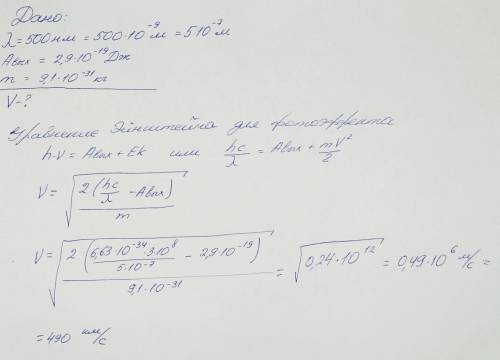 Дано:
λ = 500 нм = 500·10⁻⁹ м = 5·10⁻⁷ м
Aвых = 2,9·10⁻¹⁹ Дж
m = 9,1·10⁻³¹ кг
V - ?
Уравнение Эйнштейна для фотоэффекта
h·ν = Aвых + Ek или hc/λ = Aвых + mV²/2
V = √(2(hc/λ - Aвых)/m)
V = √(2(6,63·10⁻³⁴·3·10⁸/5·10⁻⁷ - 2,9·10⁻¹⁹)/9,1·10⁻³¹) = √(0,24·10¹²) = 0,49·10⁶ м/с =
= 490 км/с